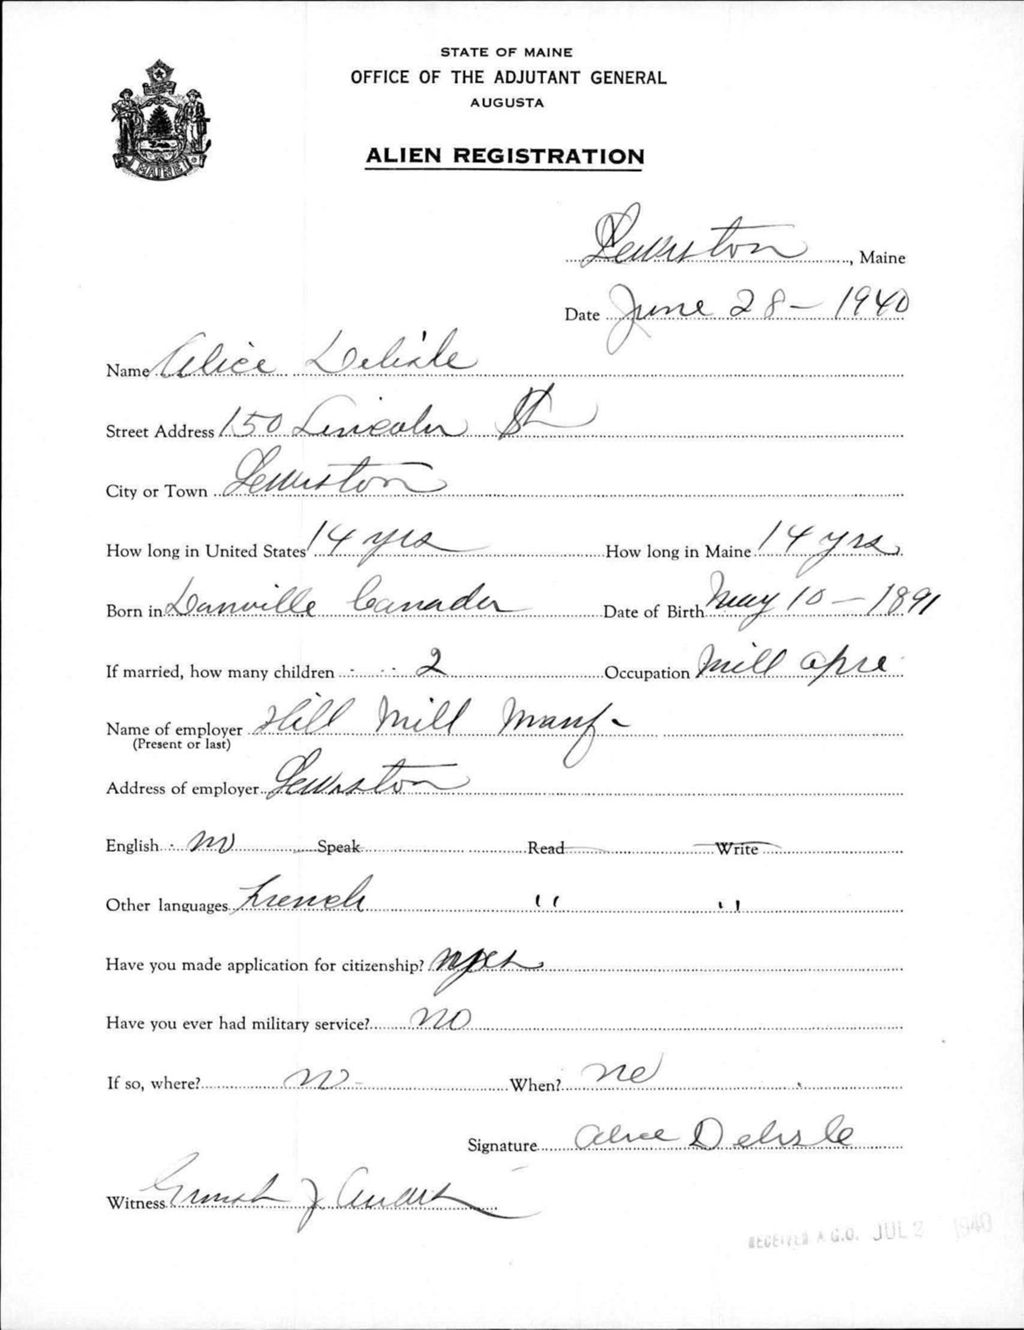 STATE OF MAINE
OFFICE OF THE ADJUTANT GENERAL
AUGUSTA
ALIEN REGISTRATION
MAINE
Lewiston, Maine
Date June 28 - 1940
Name Alice Delisle
Street Address 150 Lincoln St
City or Town Lewiston
How long in United States 14 yrs How long in Maine 14 yrs
Born in Danville Canada Date of Birth May 10 - 1891
If married, how many children 2 Occupation Mill opre
Name of employer Hill Mill Manf -
(Present or last)
Address of employer Lewiston
English no Speak Read Write
Other languages French " "
Have you made application for citizenship?
Have you ever had military service? no
If so, where? no - When? no
Signature Alice Delisle
Witness
RECEIVED A.G.O. JUL 2 1940